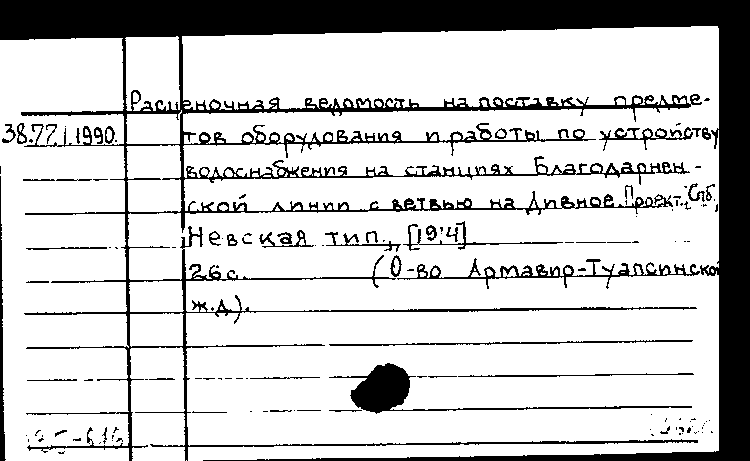 Расценочная ведомость на поставку предме-
38.77.1.1990. тов оборудования и работы по устройству
водоснабжения на станциях Благодарнен-
ской линии с ветвью на Дивное. Проект. Спб,
Невская тип., [1914]
26с. (О-во Армавир-Туапсинской
ж.д.).